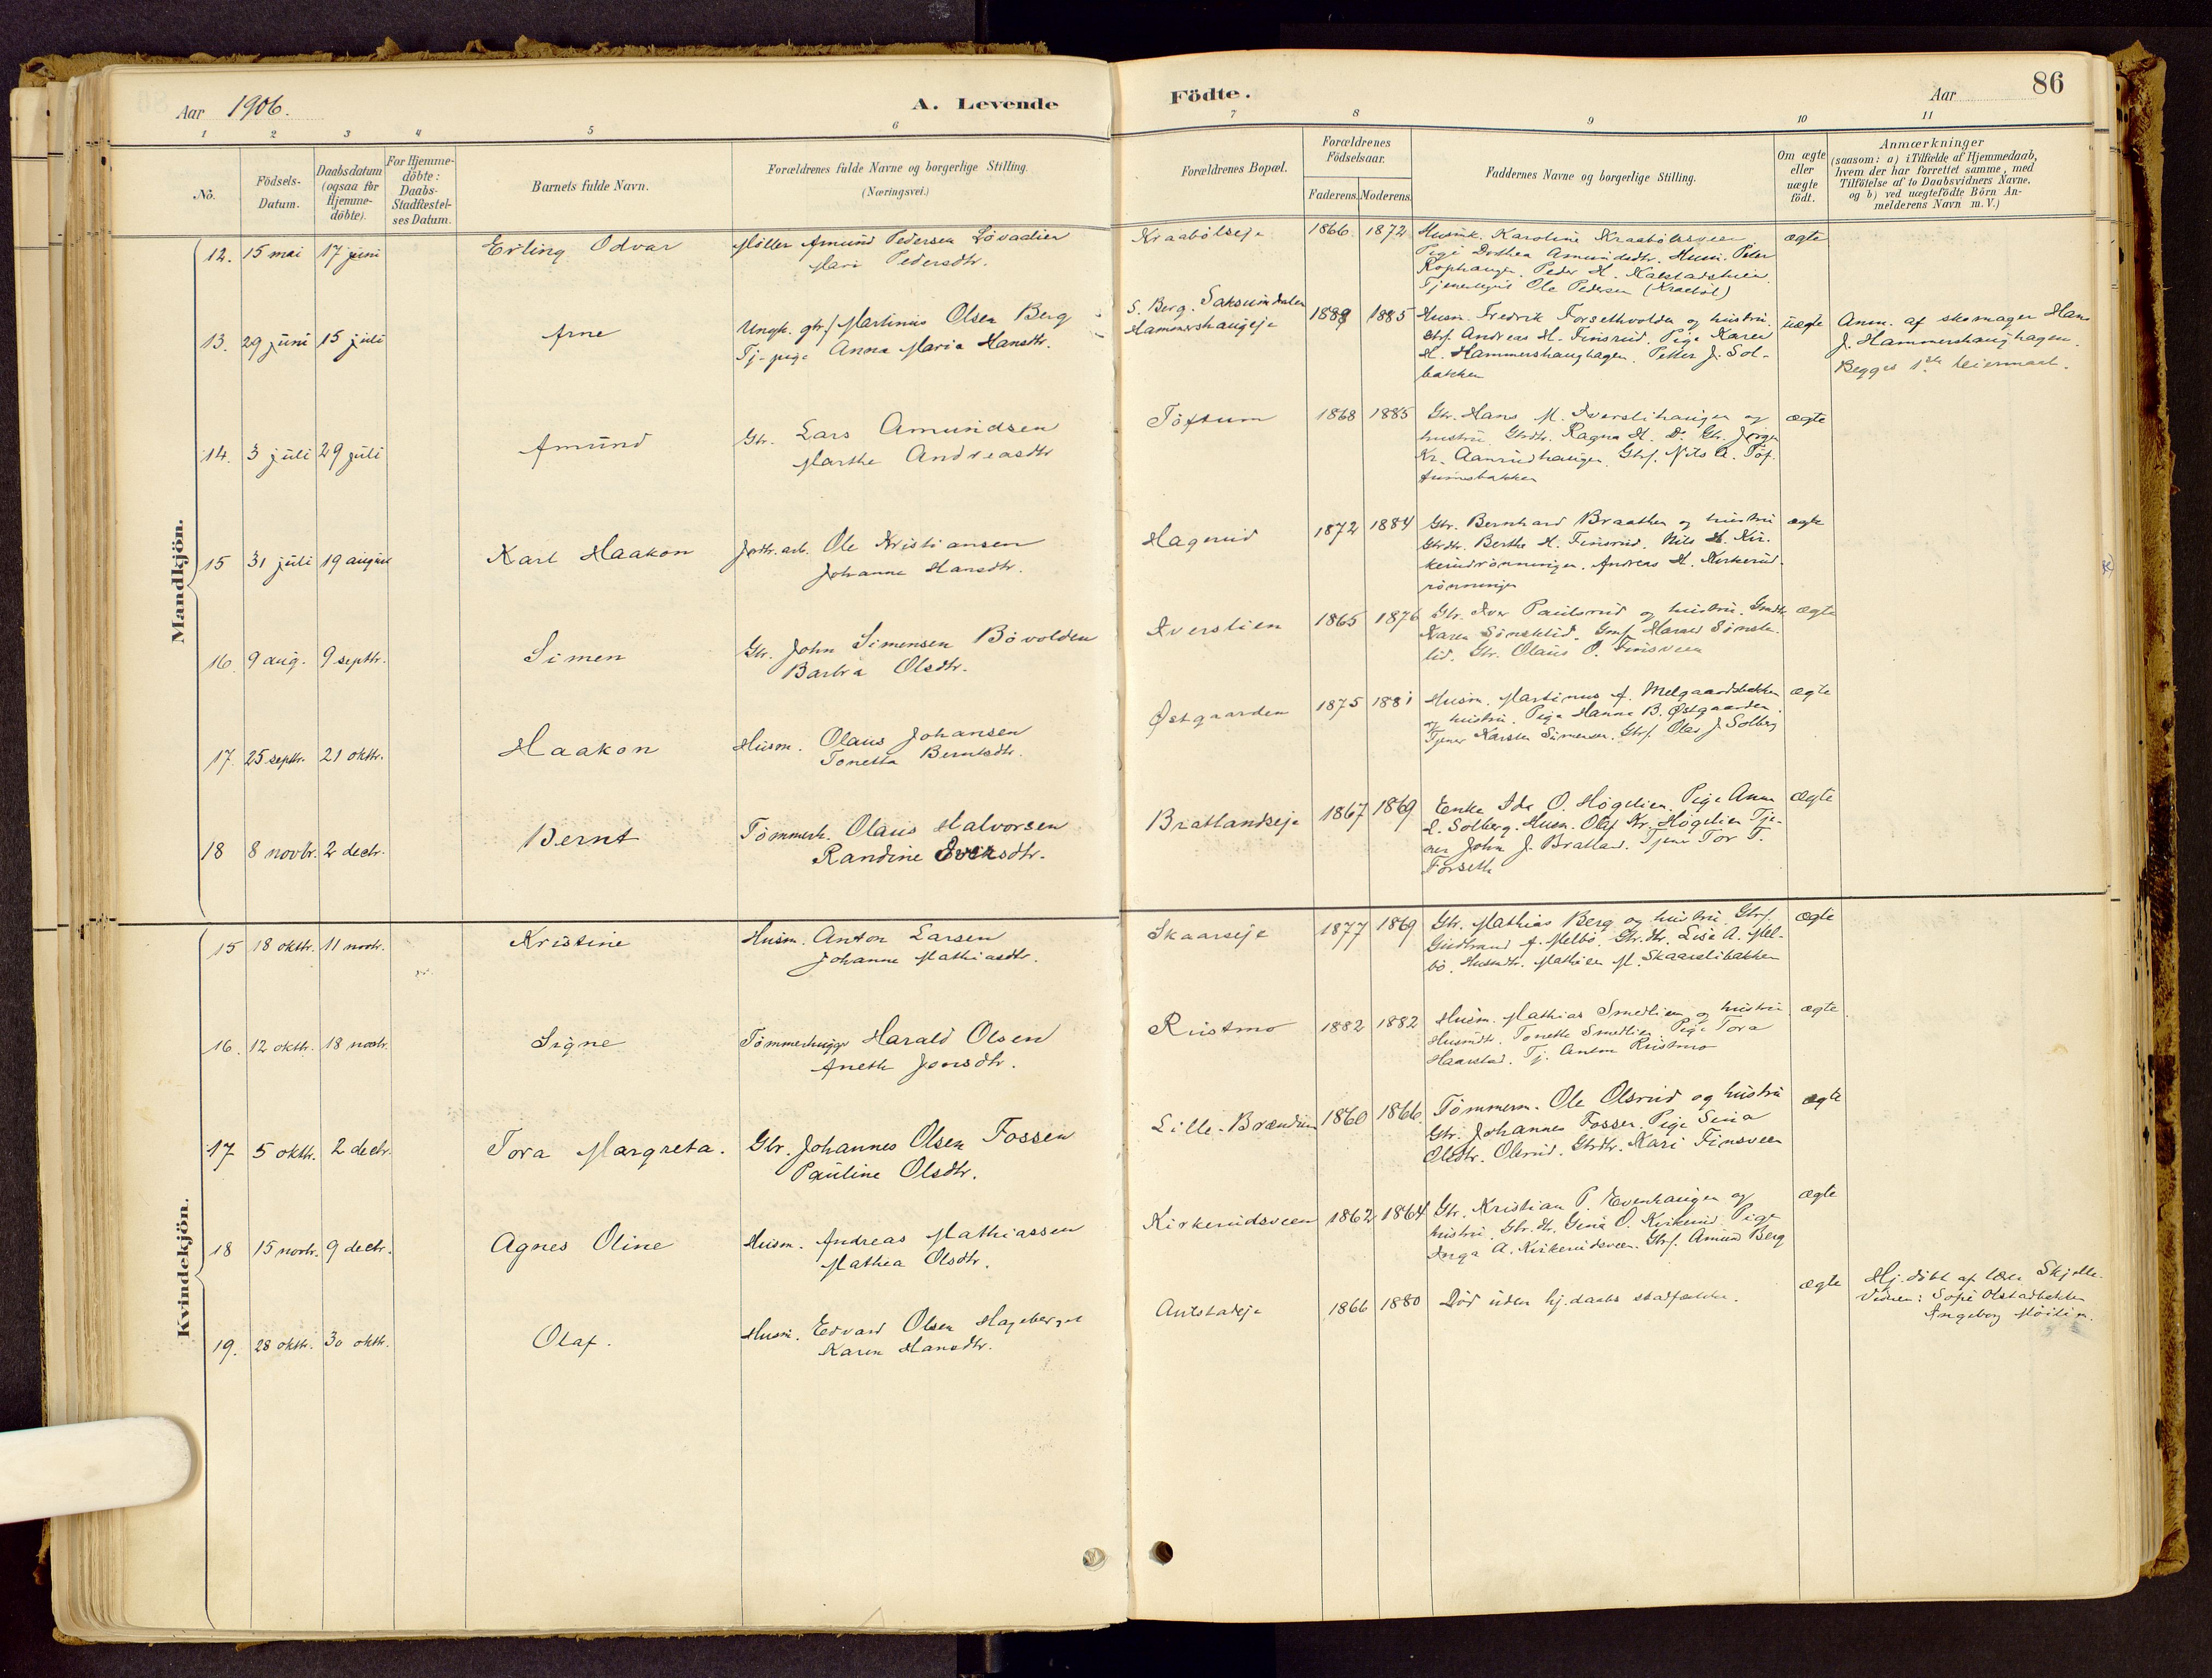 Aar 1906.
A. Levende
Födte.
Aar
86
1 2 3 4 5 6 7 8 9 10 11
No.
Födsels-
Datum.
Daabsdatum
(ogsaa for
Hjemme-
döbte).
For Hjemme-
döbte:
Daabs-
Stadfæstel-
ses Datum.
Barnets fulde Navn.
Forældrenes fulde Navne og borgerlige Stilling.
(Næringsvei.)
Forældrenes Bopæl.
Forældrenes
Födselsaar.
Faderens. Moderens.
Faddernes Navne og borgerlige Stilling.
Om ægte
eller
uægte
födt.
Anmærkninger
(saasom: a) i Tilfælde af Hjemmedaab,
hvem der har forrettet samme, med
Tilföielse af to Daabsvidners Navne.
og b) ved uægtefödte Börn An-
melderens Navn m. V.)
Mandkjön.
12. 15 mai 17 juni Erling Odvar Möller Amund Pedersen Lövaalien
Mari Pedersdtr.
Kraabölseje 1866. 1872 Karoline Kraabölsveen ægte
Pige Dorthea Amundsdtr. Husm. Peder
Kophaugen. Peder H.
Ole Pedersen (Kraaböl)
13. 29 juni 15 juli Arne Ungk. gbrs. Martinius Olsen Berg
Tj-pige Anna Maria Hansdtr.
S. Berg. Saksumdalen
Hammershaugeje
1889 1885 Husm. Fredrik Forsethvolden og hustru. uægte
Gbrs. Andreas H. Finsrud. Pige Karen
H. Hammershaughagen. Petter J. Sol-
bakken
Anm. af skomager Hans
J. Hammershaughagen.
Begges 1ste leiermaal.
14. 3 juli 29 juli Amund Gbr. Lars Amundsen
Marthe Andreasdtr
Töftum 1868 1885 Gbr. Hans M. Iverslihaugen og ægte
hustru. Gbrdtr. Ragna H. Do Gbr. Jörgen
Kr. Aanrudhaugen. Gbrs. Nils A. Töf-
tumsbakken
15 31 juli 19 august Karl Haakon Jordbr. arb. Ole Kristiansen
Johanne Hansdtr.
Hagerud 1872 1884 Gbr. Bernhard Braathen og hustru ægte
Gbrdtr. Berthe H. Finsrud. Nils H. Kir-
kerudrönningen. Andreas H. Kirkerud-
rönningen
16. 9 aug. 9 septbr. Simen Gbr. John Simensen Bövolden
Barbra Olsdtr.
Iverslien 1865 1876 Gbr. Iver Paulsrud og hustru. Gmdtr. ægte
Karen Sönstelid. Gms. Harald Sönste-
lid. Gbr. Olaus O. Finsveen
17. 25 septbr. 21 oktbr. Haakon Husm. Olaus Johansen
Tonetta Berntsdtr.
Østgaarden 1875 1881 Husm. Martinus A. Melgaardsbakken ægte
og hustru. Pige Hanna B. Østgaarden.
Tjener Karsten Simensen. Gbrs. Olav J. Solberg
18 8 novbr. 2 decbr. Bernt Tömmerh. Olaus Halvorsen
Randine Iversdtr.
Bratlandseje 1867 1869 Enke Ida O. Högelien. Pige Anna ægte
L. Solberg. Husm. Olaf Kr. Högelien Tje-
ner John J. Bratland. Tjener Tor T.
Forseth
Kvindekjön.
15 18 oktbr. 11 novbr. Kristine Husm. Anton Larsen
Johanne Mathiasdtr.
Skaarseje 1877 1869 Gbr. Mathias Berg og hustru Gbrs. ægte
Gudbrand A. Melbö. Gbr.dtr. Lise A. Mel-
bö. Husmdtr. Mathea M. Skaarslibakken
16. 12 oktbr. 18 novbr. Signe Tömmerhugger Harald Olsen
Anette Jonsdtr.
Rustmo 1882 1882 Husm. Mathias Smedlien og hustru ægte
Husmdtr. Tonette Smedlien. Pige Tora
Haarstad. Tj. Anton Rustmo
17 5 oktbr. 2 decbr. Tora Margreta. Gbr. Johannes Olsen Fossen
Pauline Olsdtr.
Lille-Brændun 1860 1866. Tömmerm. Ole Olsrud og hustru ægte
Gbr. Johannes Fossen. Pige Sina
Olsdtr. Olsrud. Gbrdtr. Kari Finsveen
18 15 novbr. 9 decbr. Agnes Oline Husm. Andreas Mathiassen
Mathea Olsdtr.
Kirkerudsveen 1862 1864 Gbr. Kristian P. Evenhaugen og ægte
hustru. Gbr.dtr. Gina O. Kirkerud. Pige
Inga A. Kirkerudsveen. Gbrs. Amund Berg
19. 28 oktbr. 30 oktbr. Olaf. Husm. Edvard Olsen Hageberget
Karen Hansdtr.
Aulstadeje 1866 1880 Död uden hj.daabs stadfæstelse. ægte
Hj. döbt af lærer Skjelle.
Vidner: Sofie Olstadbakken
Ingeborg Möilien.